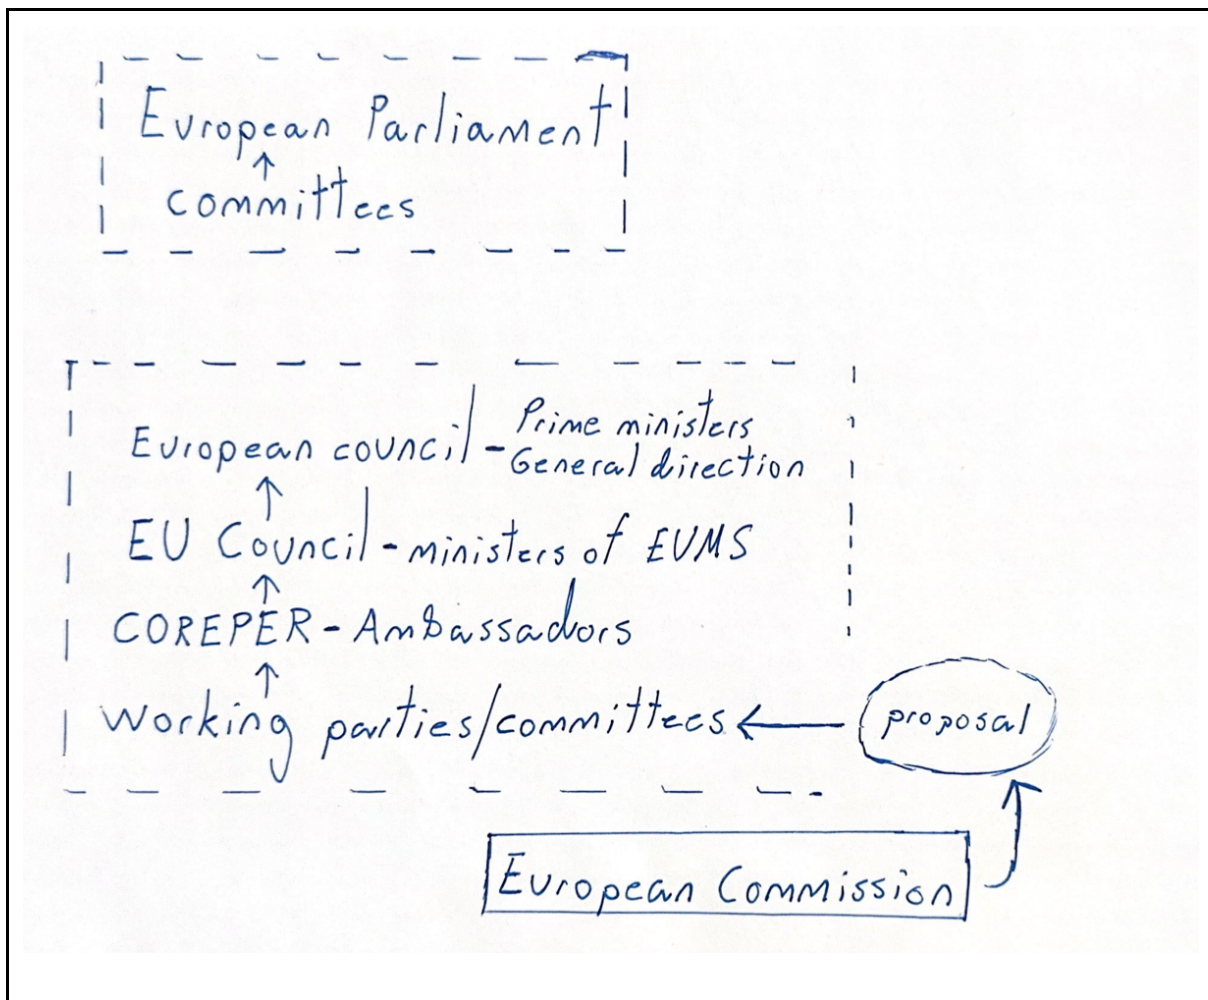 European Parliament
committees
European council - Prime ministers
General direction
EU Council - ministers of EUMS
COREPER - Ambassadors
working parties/committees
proposal
European Commission